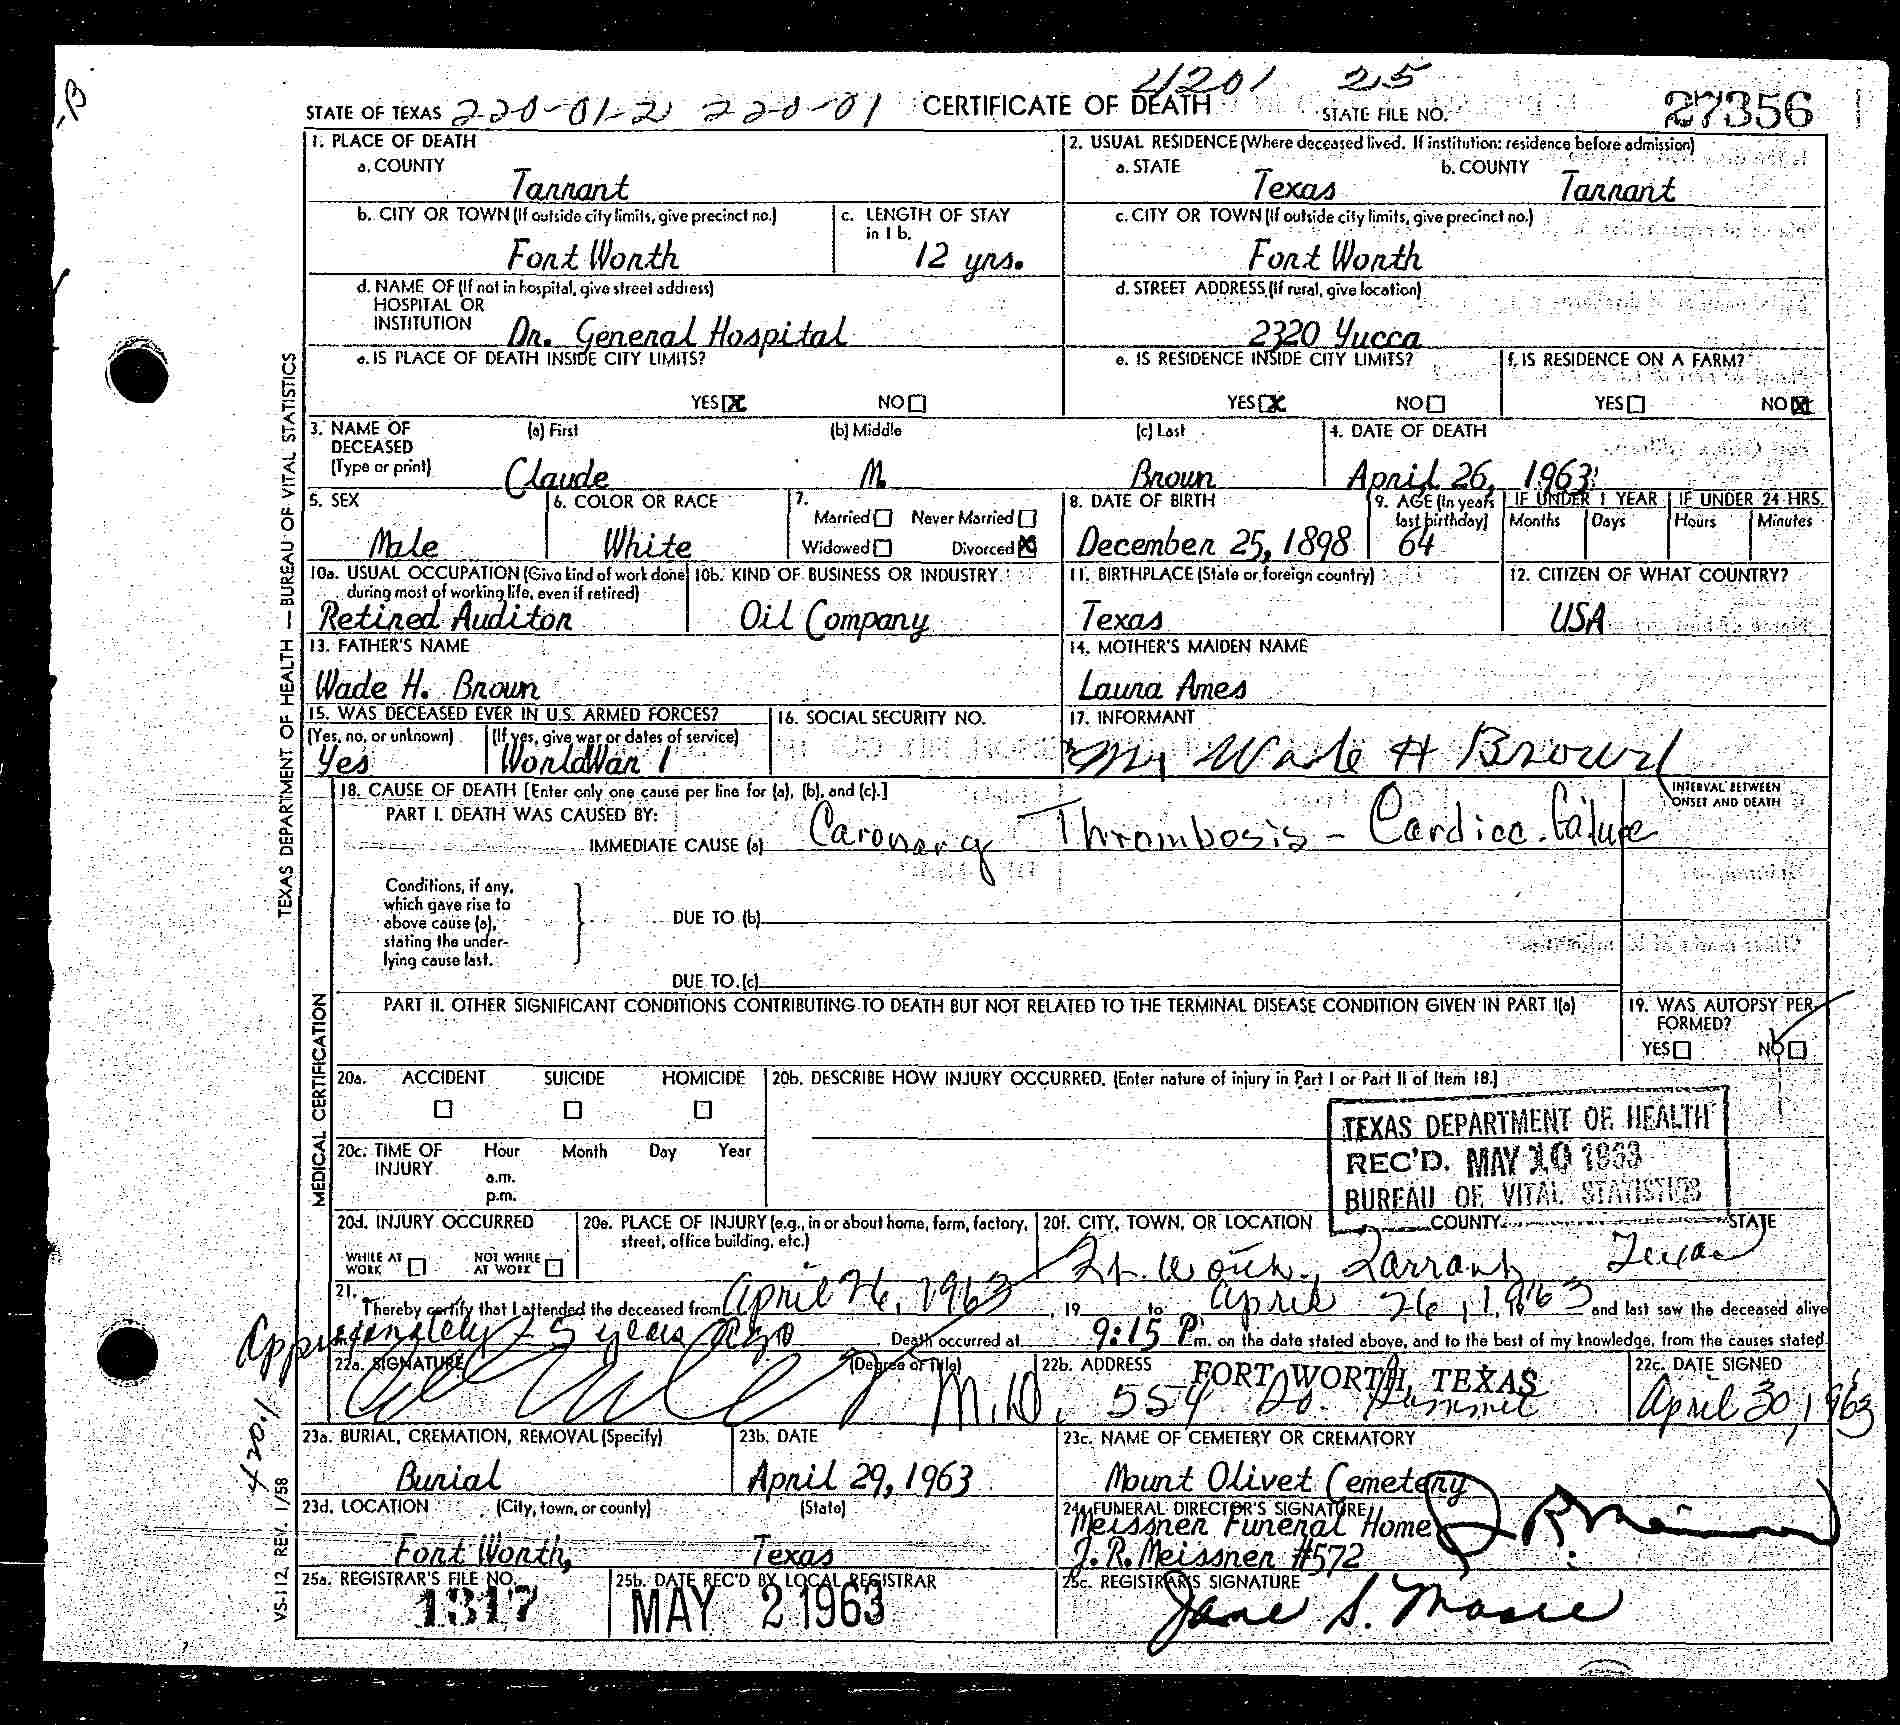 4201 25
STATE OF TEXAS 220-01-2 220-01 CERTIFICATE OF DEATH STATE FILE NO. 27356
1. PLACE OF DEATH
a. COUNTY
Tarrant
2. USUAL RESIDENCE (Where deceased lived. If institution: residence before admission)
a. STATE b. COUNTY
Texas Tarrant
b. CITY OR TOWN (If outside city limits, give precinct no.)
Fort Worth
c. LENGTH OF STAY
in 1 b.
12 yrs.
c. CITY OR TOWN (If outside city limits, give precinct no.)
Fort Worth
d. NAME OF (If not in hospital, give street address)
HOSPITAL OR
INSTITUTION Dr. General Hospital
d. STREET ADDRESS (If rural, give location)
2320 Yucca
e. IS PLACE OF DEATH INSIDE CITY LIMITS?
YES X NO
e. IS RESIDENCE INSIDE CITY LIMITS?
YES X NO
f. IS RESIDENCE ON A FARM?
YES NO X
3. NAME OF
DECEASED
(Type or print)
(a) First (b) Middle (c) Last
Claude M. Brown
4. DATE OF DEATH
April 26, 1963
5. SEX
Male
6. COLOR OR RACE
White
7.
Married Never Married
Widowed Divorced X
8. DATE OF BIRTH
December 25, 1898
9. AGE (In years
last birthday)
64
IF UNDER 1 YEAR IF UNDER 24 HRS.
Months Days Hours Minutes
10a. USUAL OCCUPATION (Give kind of work done
during most of working life, even if retired)
Retired Auditor
10b. KIND OF BUSINESS OR INDUSTRY
Oil Company
11. BIRTHPLACE (State or foreign country)
Texas
12. CITIZEN OF WHAT COUNTRY?
USA
13. FATHER'S NAME
Wade H. Brown
14. MOTHER'S MAIDEN NAME
Laura Ames
15. WAS DECEASED EVER IN U.S. ARMED FORCES?
(Yes, no, or unknown) (If yes, give war or dates of service)
Yes World War I
16. SOCIAL SECURITY NO.
17. INFORMANT
Mr Wade H Brown
18. CAUSE OF DEATH [Enter only one cause per line for (a), (b), and (c).]
INTERVAL BETWEEN
ONSET AND DEATH
PART I. DEATH WAS CAUSED BY:
IMMEDIATE CAUSE (a) Caronary Thrombosis - Cardiac failure
Conditions, if any,
which gave rise to
above cause (a),
stating the under-
lying cause last.
DUE TO (b)
DUE TO (c)
PART II. OTHER SIGNIFICANT CONDITIONS CONTRIBUTING TO DEATH BUT NOT RELATED TO THE TERMINAL DISEASE CONDITION GIVEN IN PART I(a)
19. WAS AUTOPSY PER-
FORMED?
YES NO
20a. ACCIDENT SUICIDE HOMICIDE
20b. DESCRIBE HOW INJURY OCCURRED. (Enter nature of injury in Part I or Part II of Item 18.)
TEXAS DEPARTMENT OF HEALTH
REC'D. MAY 10 1963
BUREAU OF VITAL STATISTICS
20c. TIME OF
INJURY
Hour Month Day Year
a.m.
p.m.
20d. INJURY OCCURRED
WHILE AT
WORK
NOT WHILE
AT WORK
20e. PLACE OF INJURY (e.g., in or about home, farm, factory,
street, office building, etc.)
20f. CITY, TOWN, OR LOCATION COUNTY STATE
Ft. Worth, Tarrant Texas
21.
I hereby certify that I attended the deceased from April 26, 1963, 19 to April 26, 1963 and last saw the deceased alive
Approximately 25 years ago Death occurred at 9:15 P.m. on the date stated above, and to the best of my knowledge, from the causes stated.
22a. SIGNATURE (Degree or Title)
M.D.
22b. ADDRESS FORT WORTH, TEXAS
554 So. Summit
22c. DATE SIGNED
April 30, 1963
23a. BURIAL, CREMATION, REMOVAL (Specify)
Burial
23b. DATE
April 29, 1963
23c. NAME OF CEMETERY OR CREMATORY
Mount Olivet Cemetery
23d. LOCATION (City, town, or county) (State)
Fort Worth, Texas
24. FUNERAL DIRECTOR'S SIGNATURE
Meissner Funeral Home J R. Meissner
J. R. Meissner #572
25a. REGISTRAR'S FILE NO.
1317
25b. DATE REC'D BY LOCAL REGISTRAR
MAY 2 1963
25c. REGISTRAR'S SIGNATURE
Jane S. Masee
TEXAS DEPARTMENT OF HEALTH — BUREAU OF VITAL STATISTICS
MEDICAL CERTIFICATION
4201
VS-112, REV. 1/58